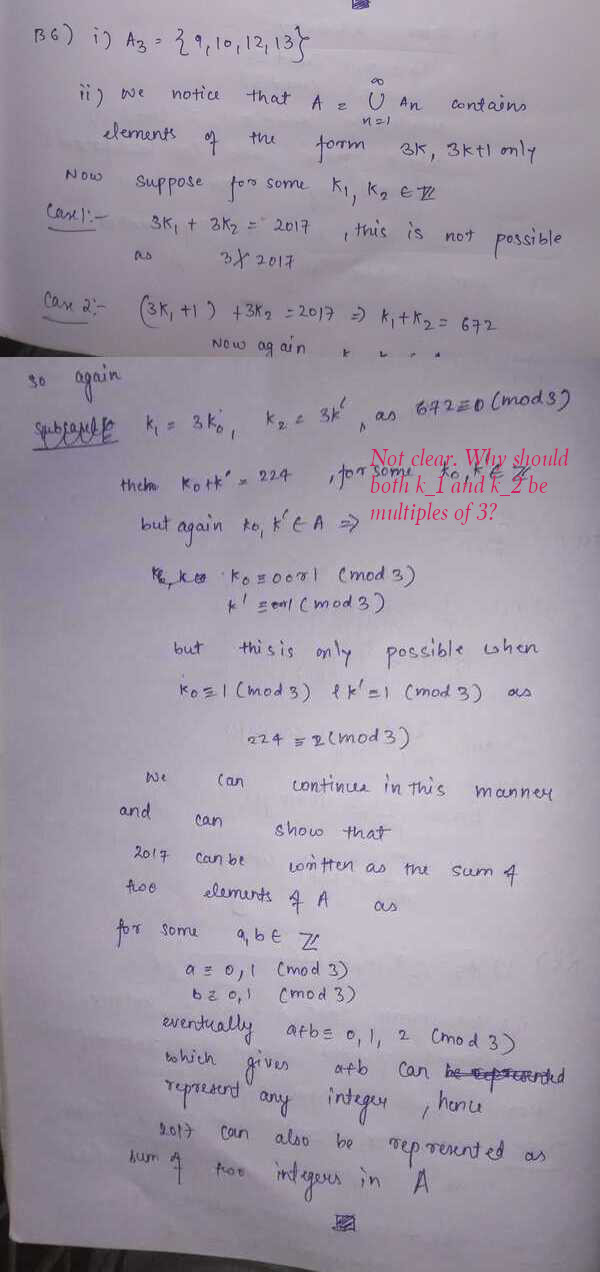 B6) i) A₃ = {9, 10, 12, 13}
ii) We notice that A = ∞∪n=1 An contains
elements of the form 3K, 3K+1 only
Now suppose for some K₁, K₂ ∈ ℤ
Case 1:- 3K₁ + 3K₂ = 2017, this is not possible
as 3∤2017
Case 2:- (3K₁+1) + 3K₂ = 2017 ⇒ K₁+K₂ = 672
Now again
so again
K₁ = 3K₀, K₂ = 3K′, as 672≡0 (mod 3)
then K₀+K′ = 224, for some K₀, K′ ∈ ℤ
Not clear. Why should
both k_1 and k_2 be
multiples of 3?
but again K₀, K′ ∈ A ⇒
K₀ ≡ 0 or 1 (mod 3)
K′ ≡ 0 or 1 (mod 3)
but this is only possible when
K₀ ≡ 1 (mod 3) & K′ ≡ 1 (mod 3) as
224 ≡ 2 (mod 3)
We can continue in this manner
and can show that
2017 can be written as the sum of
two elements of A as
for some a, b ∈ ℤ
a ≡ 0, 1 (mod 3)
b ≡ 0, 1 (mod 3)
eventually a+b ≡ 0, 1, 2 (mod 3)
which gives a+b can be represented
represent any integer, hence
2017 can also be represented as
sum of two integers in A